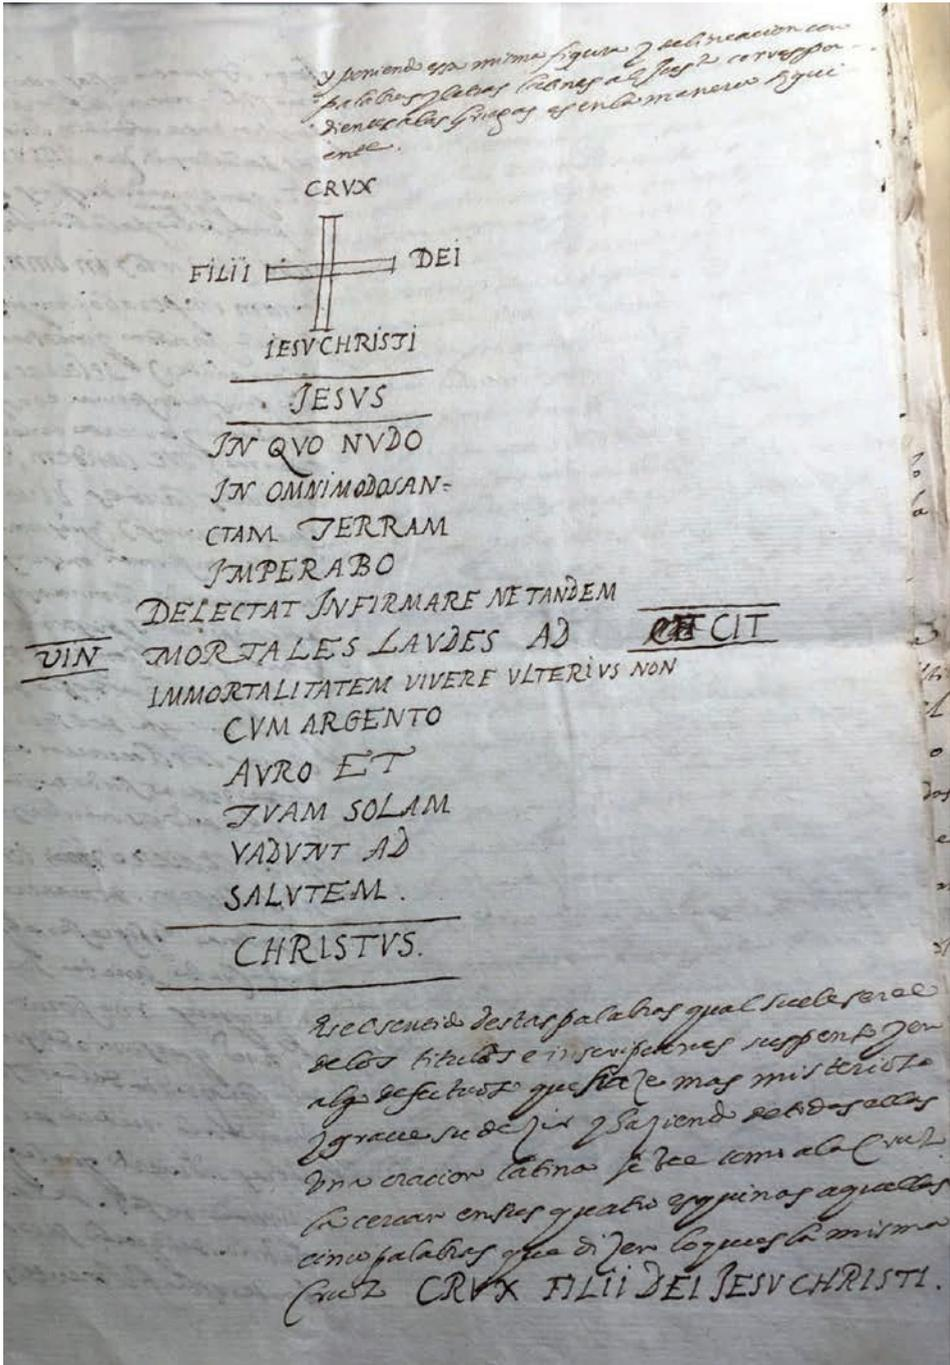 y poniendo essa misma figura y delineacion con
palabras y letras latinas al justo correspon-
dientes a las Griegas es en la manera sigui
ente.
CRVX
FILII DEI
IESV CHRISTI
JESVS
IN QVO NVDO
IN OMNIMODO SAN=
CTAM TERRAM
IMPERABO
DELECTAT INFIRMARE NE TANDEM
VIN MORTALES LAVDES AD CIT
IMMORTALITATEM VIVERE VLTERIVS NON
CVM ARGENTO
AVRO ET
TVAM SOLAM
VADVNT AD
SALVTEM.
CHRISTVS.
es el sentido destas palabras qual suele ser el
de los titulos e inscripciones suspenso y en
algo defectuoso que haze mas misterioso
y grave su dezir y haziendo de todas ellas
una oracion latina se vee como a la Cruz
la cercan en sus quatro esquinas aquellas
cinco palabras que dizen lo que es la misma
Cruz CRVX FILII DEI JESV CHRISTI.